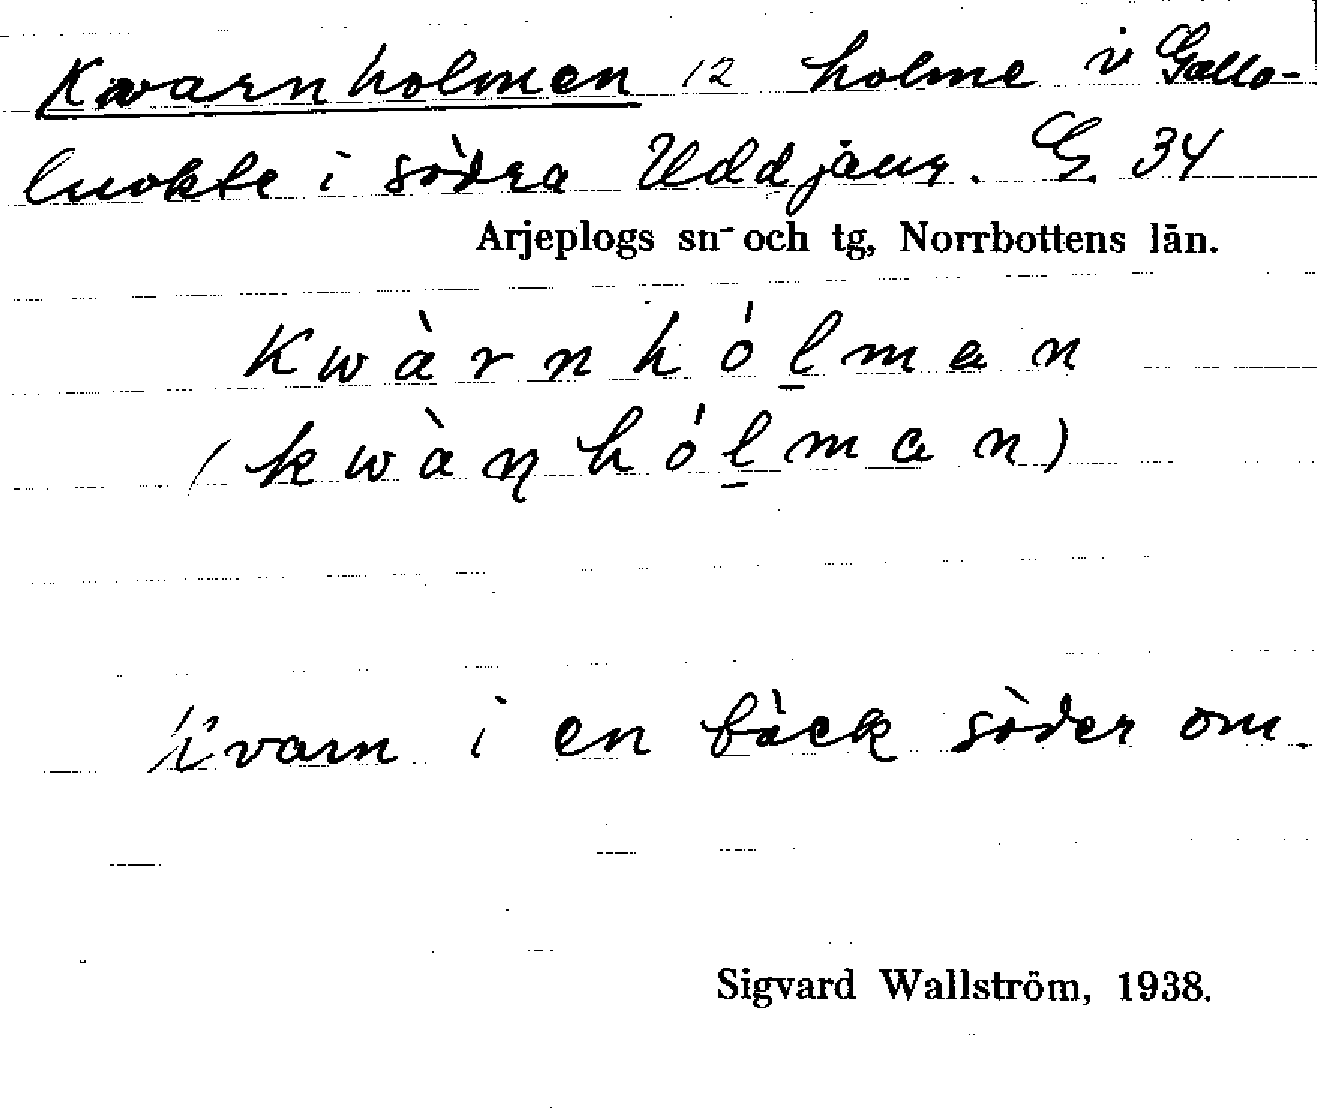 Kvarnholmen 12 holme i Gallo-
luokte i södra Uddjaur. G. 34
Arjeplogs sn- och tg, Norrbottens län.
K w à r n h ó l̲ m a n
(k w à ṇ h ó l̲ m a n)
Kvarn i en bäck söder om.
Sigvard Wallström, 1938.